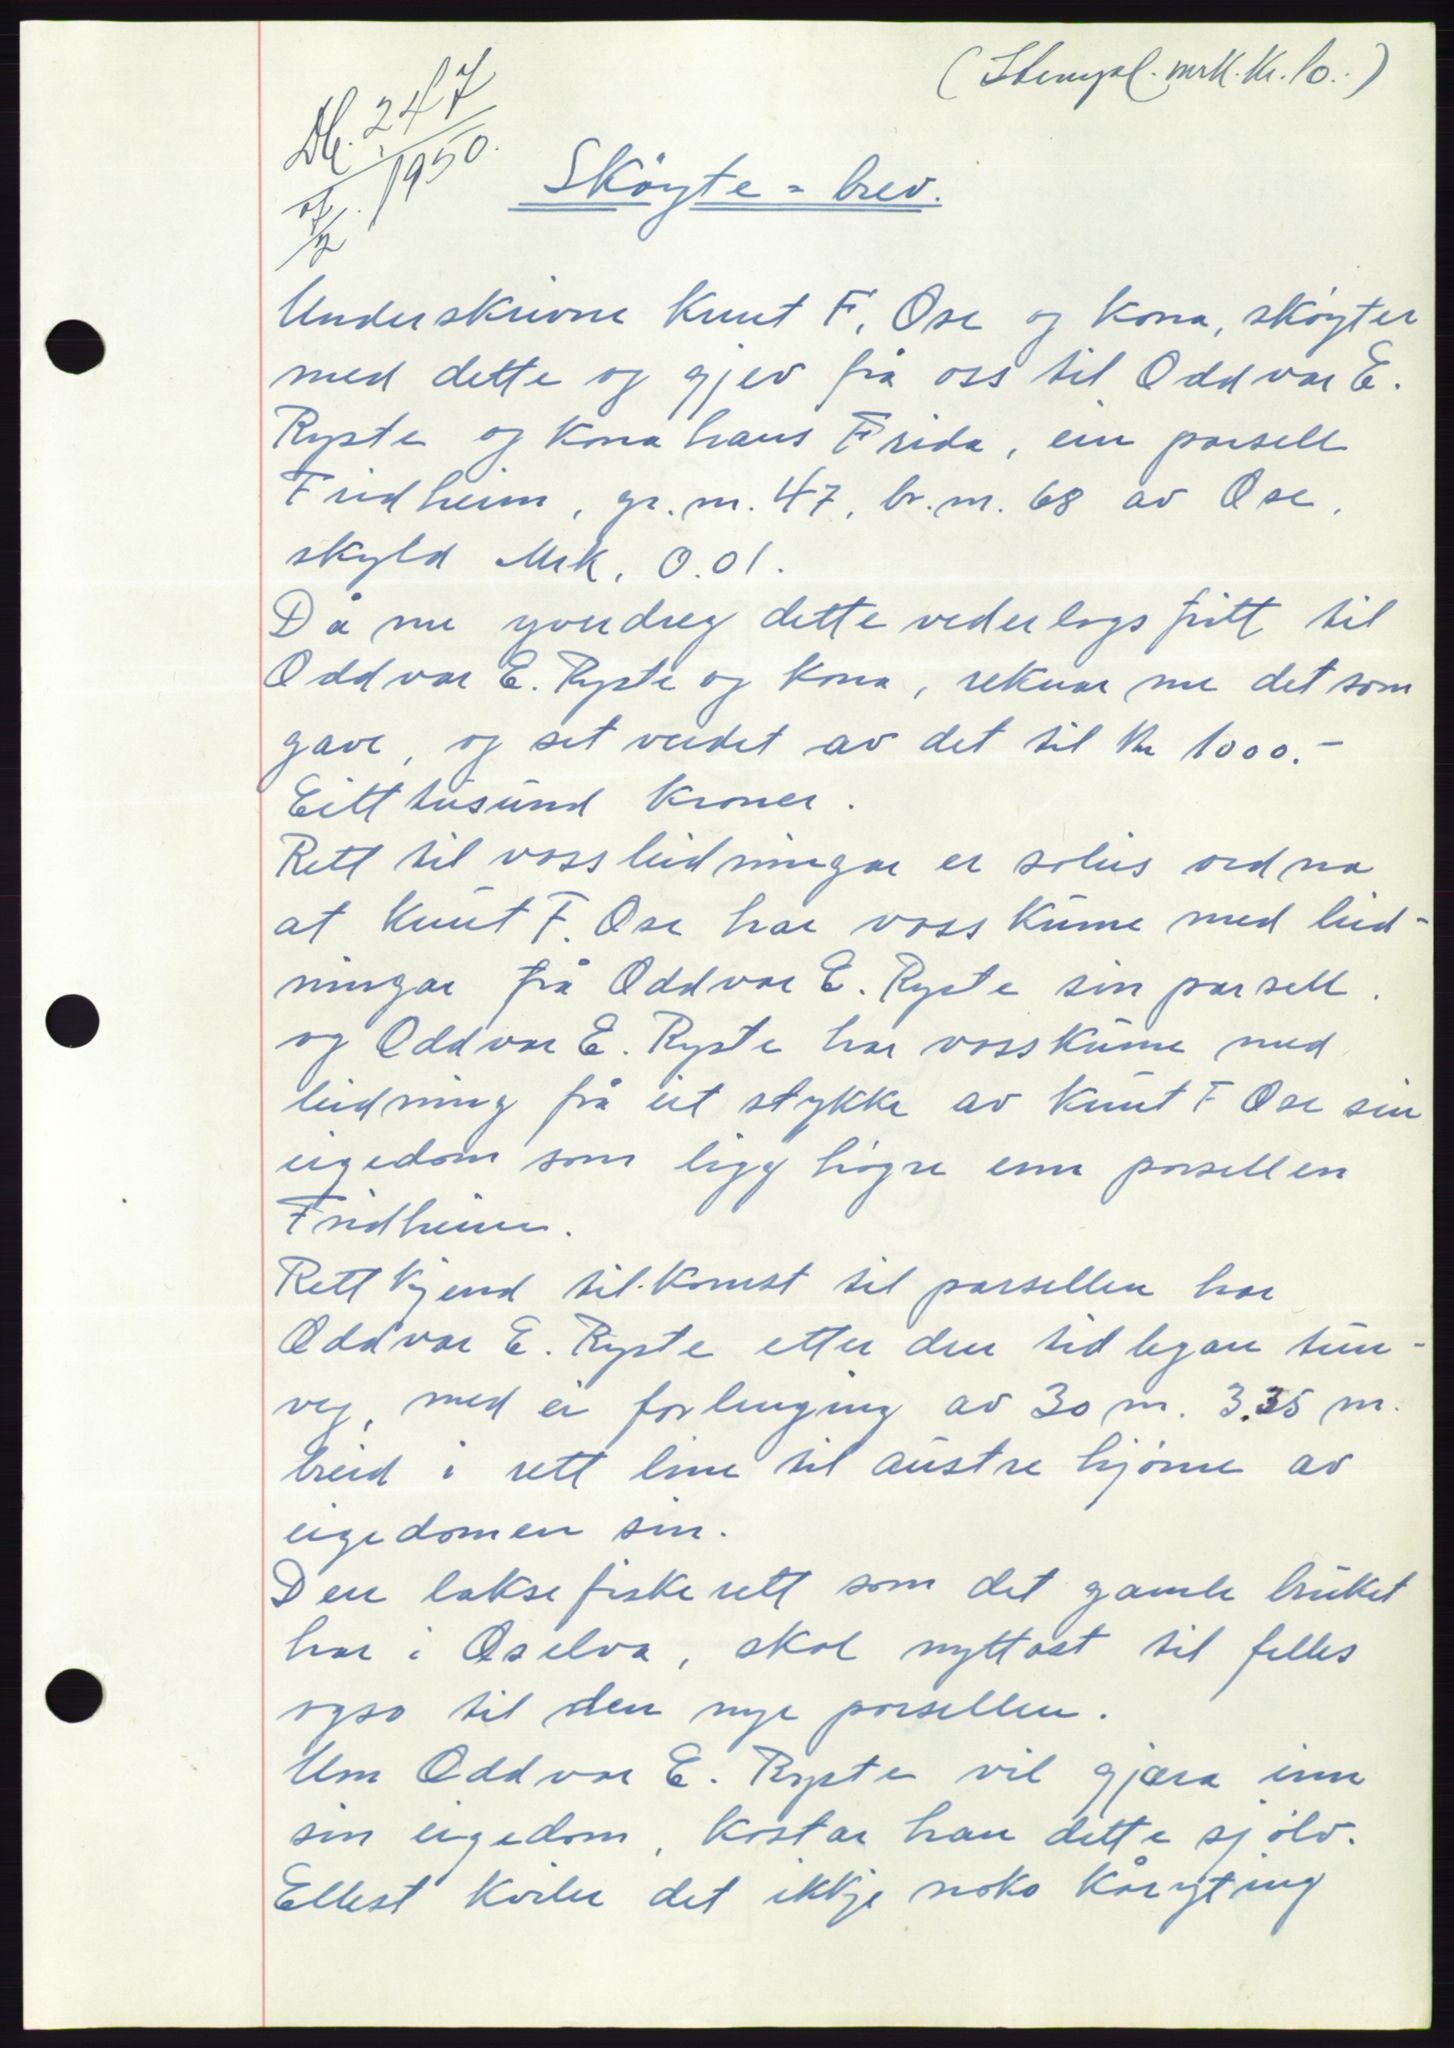 (Stempel. mrk. kr. 10..)
Db. 247/1950.
7/2
Sköyte = brev.
Underskrivne Knut F. Ose og kona, sköyter
med dette og gjev frå oss til Oddvar E.
Ryste og kona hans Frida, ein parsell
Fridheim, gr. nr. 47, br. nr. 68 av Ose,
skyld Mrk. 0.01.
Då me yverdreg dette vederlagsfritt til
Oddvar E. Ryste og kona, reknar me det som
gave, og set verdet av det til Kr 1000.-
Eitt tusund kroner.
Rett til vassleidningar er soleis ordna
at Knut F. Ose har vasskume med leid-
ningar frå Oddvar E. Ryste sin parsell.
og Oddvar E. Ryste har vasskume med
leidning frå eit stykke av Knut F Ose sin
eigedom som ligg högre enn parsellen
Fridheim.
Rettkjend tilkomst til parsellen har
Oddvar E. Ryste etter den tidlegare tun-
veg, med ei forlenging av 30 m. 3.35 m.
breid i rett line til austre hjörne av
eigedomen sin.
Den laksefiskerett som det gamle bruket
har i Oselva, skal nyttast til felles
ogso til den nye parsellen.
Um Oddvar E. Ryste vil gjæra inn
sin eigedom, kostar han dette sjölv.
Ellest kviler det ikkje noko kåryting